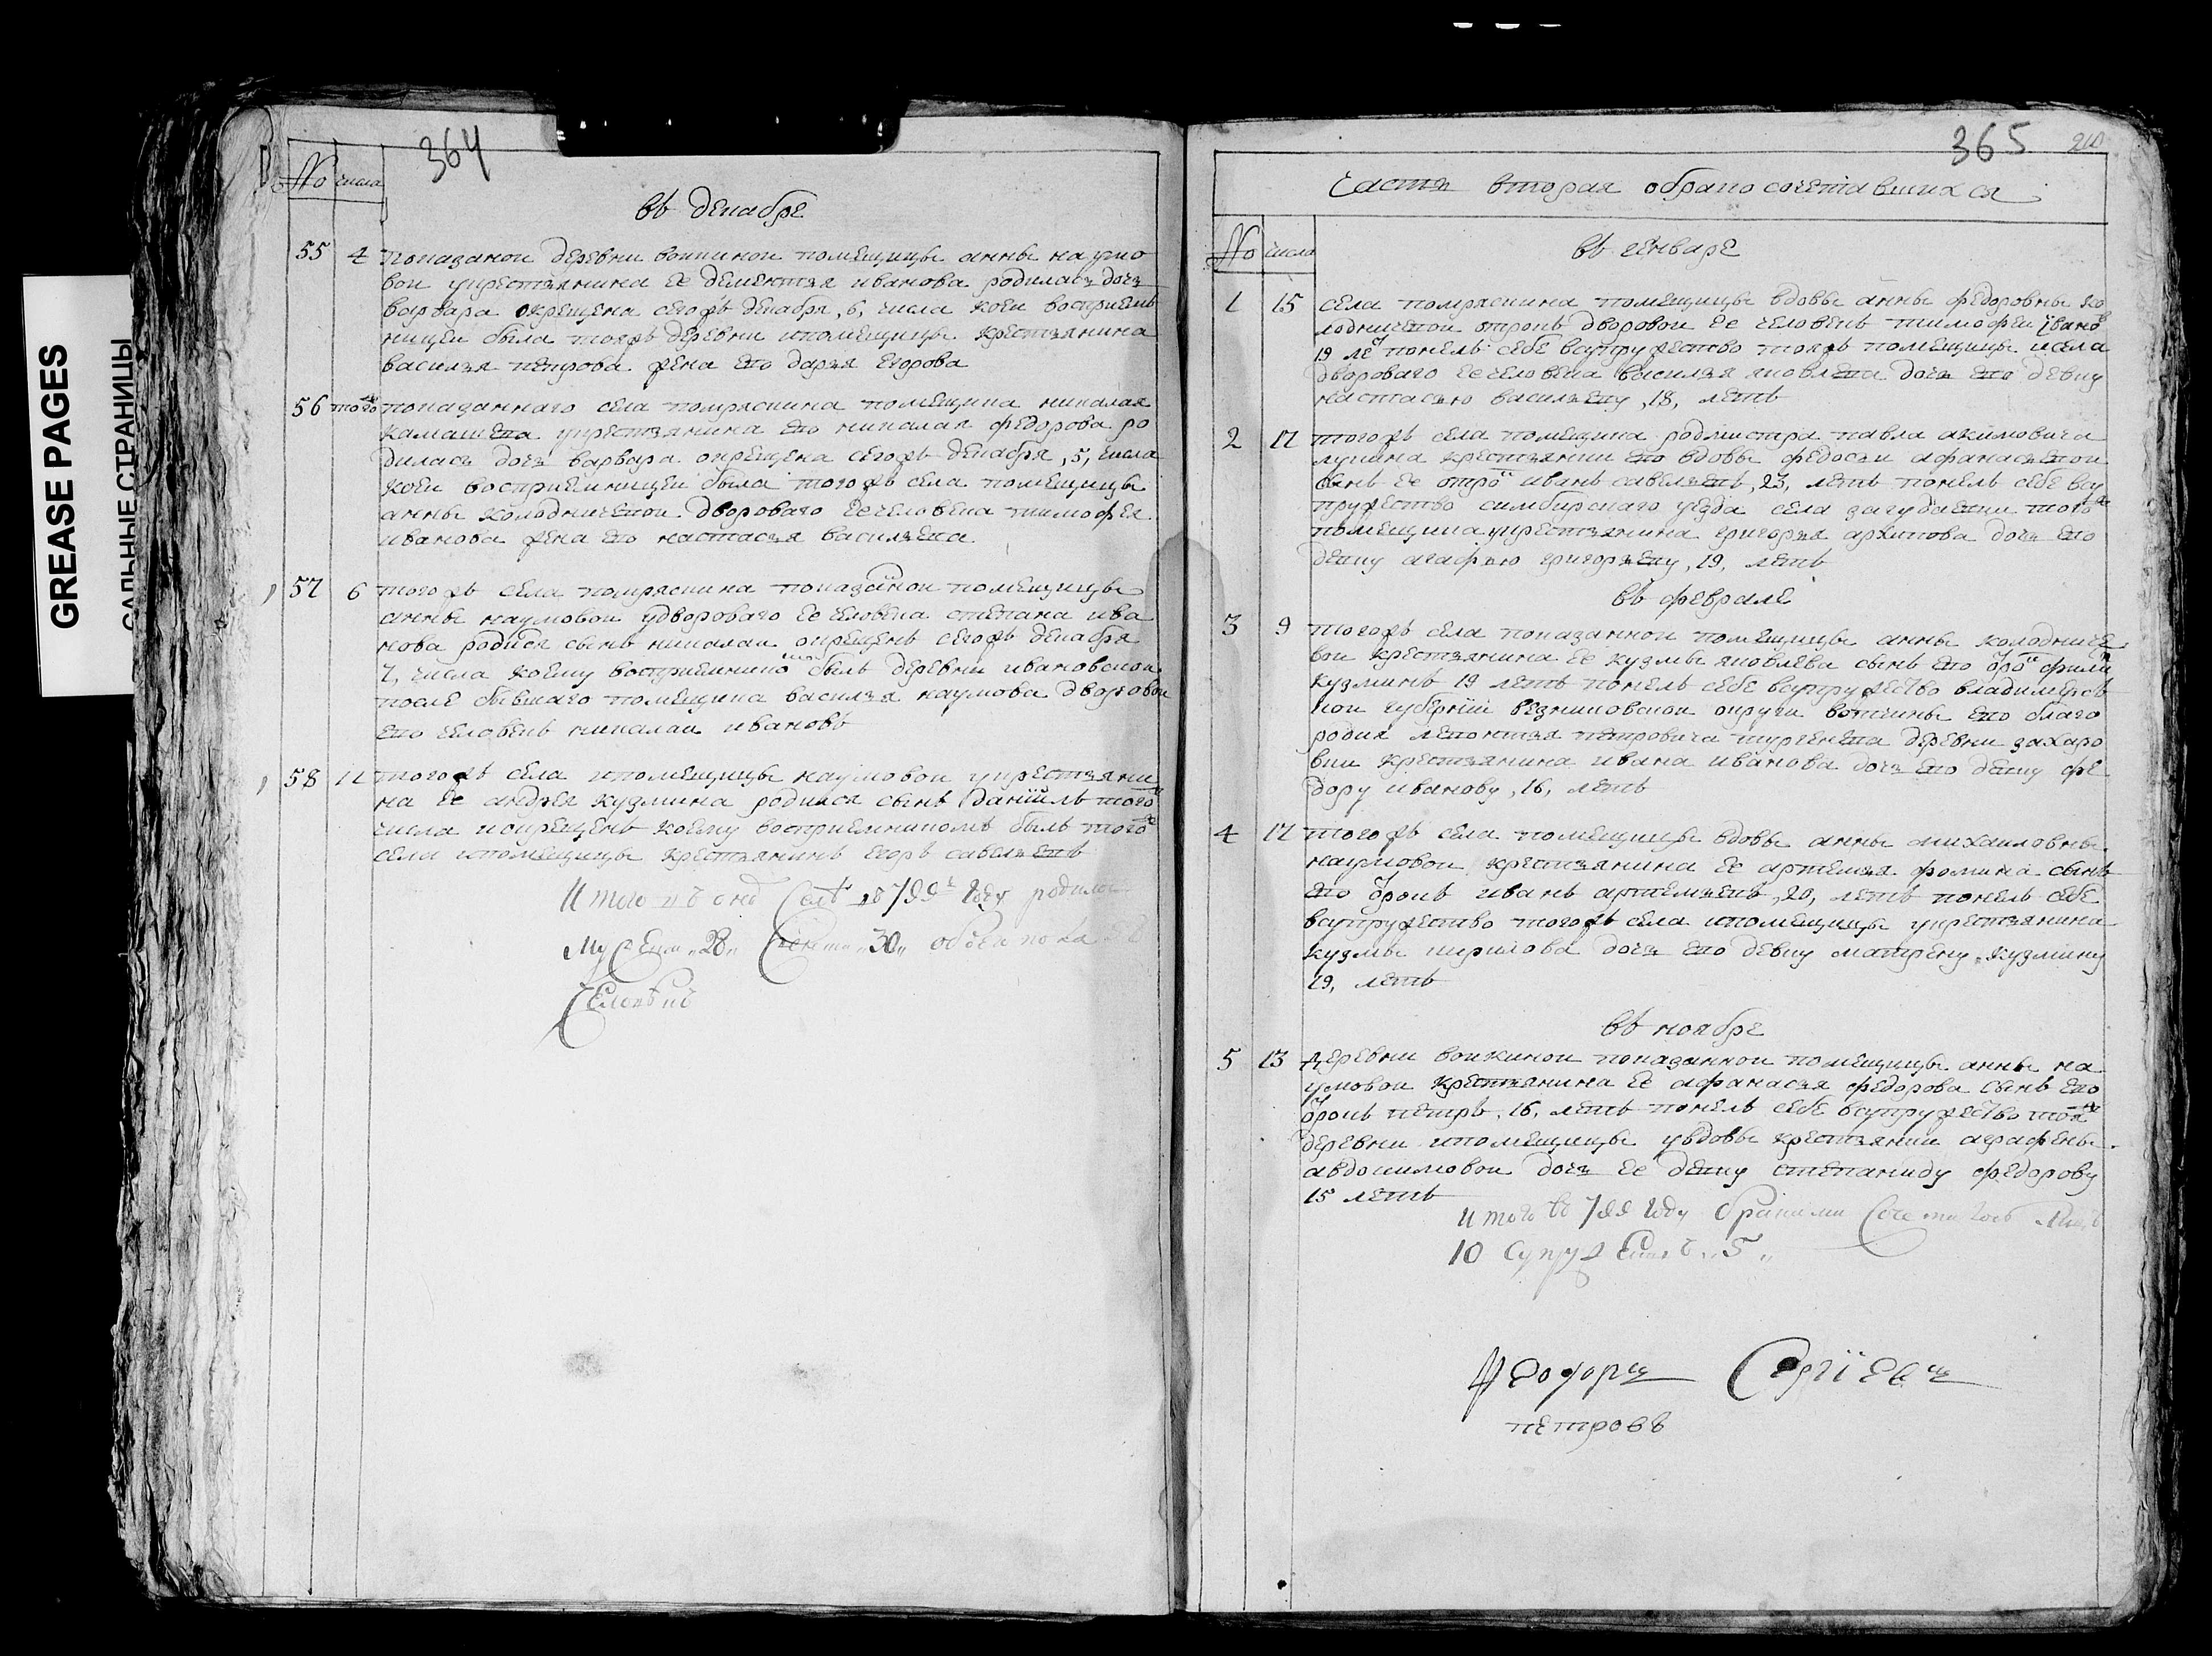 GREASE PAGES
САЛЬНЫЕ СТРАНИЦЫ
364
№ числа
въ декабре
55 4 показаной деревни воикиной помещицы анны наумо
вой у крестьянина ее дементья иванова родилась дочь
варвара окрещена сегожъ декабря, 6, числа коей восприем
ницей была тояжъ деревни и помещицы крестьянина
василья петрова жена ево дарья егорова
56 того ж показаннаго села помряскина помещика николая
камашева у крестьянина ево николая федорова ро
дилась дочь варвара окрещена сегожъ декабря, 5, числа
коей восприемницей была тогожъ села помещицы
анны колодничевой дворового ее человека тимофея
иванова жена ево настасья васильева
57 6 тогожъ села помряскина показаной помещицы
анны наумовой у дворового ее человека степана ива
нова родися сынъ николай окрещенъ сегожъ декабря
7, числа коему восприемнико былъ деревни ивановской
после бывшаго помещика василья наумова дворовой
ево человекъ николай ивановъ
58 12 тогожъ села и помещицы наумовой у крестьяни
на ее андрея кузмина родился сынъ даниилъ того ж
числа и окрещенъ коему восприемникомъ былъ того ж
села и помещицы крестьянинъ егоръ савельевъ
Итого въ 1799 году родилос
Мужеска „28„ женска „30„ обоего пола
Человекъ
365
Часть вторая о бракосочетавшихся
№ число
въ генваре
1 15 села помряскина помещицы вдовы анны федоровны ко
лодничевой отрокъ дворовой ее человекъ тимофей ивано в
19 ле понелъ себе в супружество тояжъ помещицы и села
дворового ее человека василья яковлева дочь ево девку
настасью васильеву, 18, летъ
2 17 тогожъ села помещика родмистра павла акимовича
лупина крестьянки ево вдовы федосьи афанасьевой
сынъ ее отро иванъ савельевъ, 23, летъ понелъ себе в су
пружество симбирскаго уезда села загудаевки того ж
помещика у крестьянина григорья архипова дочь ево
девку агафью григорьеву, 19, летъ
въ феврале
3 9 тогожъ села показанной помещицы анны колодниче
вой крестьянина ее кузмы яковлева сынъ ево отро филип
кузминъ 19 летъ понелъ себе в супружество владимерс
кой губернии везниковской округи вотчины ево благо
родия леонтья петровича тургенева деревни захаро
вки крестьянина ивана иванова дочь ево девку фе
дору иванову, 16, летъ
4 17 тогожъ села помещицы вдовы анны михайловны
наумовой крестьянина ее артемья фомина сынъ
ево отрокъ иванъ артемьевъ, 20, летъ понелъ себе
в супружество тогожъ села и помещицы у крестьянина
кузмы кирилова дочь ево девку матрену кузмину
19, летъ
въ ноябре
5 13 деревни воикиной показанной помещицы анны на
умовой крестьянина ее афанасья федорова сынъ ево
отрокъ петръ, 16, летъ понелъ себе в супружество тоя ж
деревни и помещицы у вдовы крестьянки аграфены
авдокимовой дочь ее девку степаниду федорову
15 летъ
Итого въ 1799 году браками сочеталось
10 супружествъ „5„
Федоръ Сергиевъ
петровъ